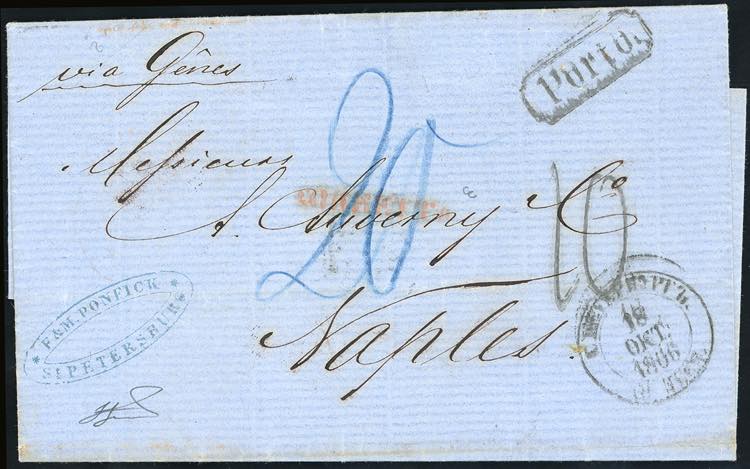 via Gênes
Porto.
Messieurs
20
A. Auverny & Co
10
Naples.
* F & M. PONFICK *
St. PETERSBURG
18
ОКТ.
1866